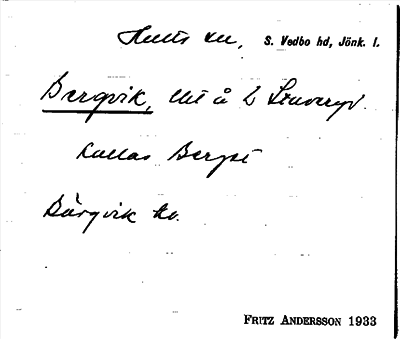 Hults sn, S. Vedbo hd, Jönk. l.
Bergvik, lht å L
kallas Bergst
Bärgvik
FRITZ ANDERSSON 1933